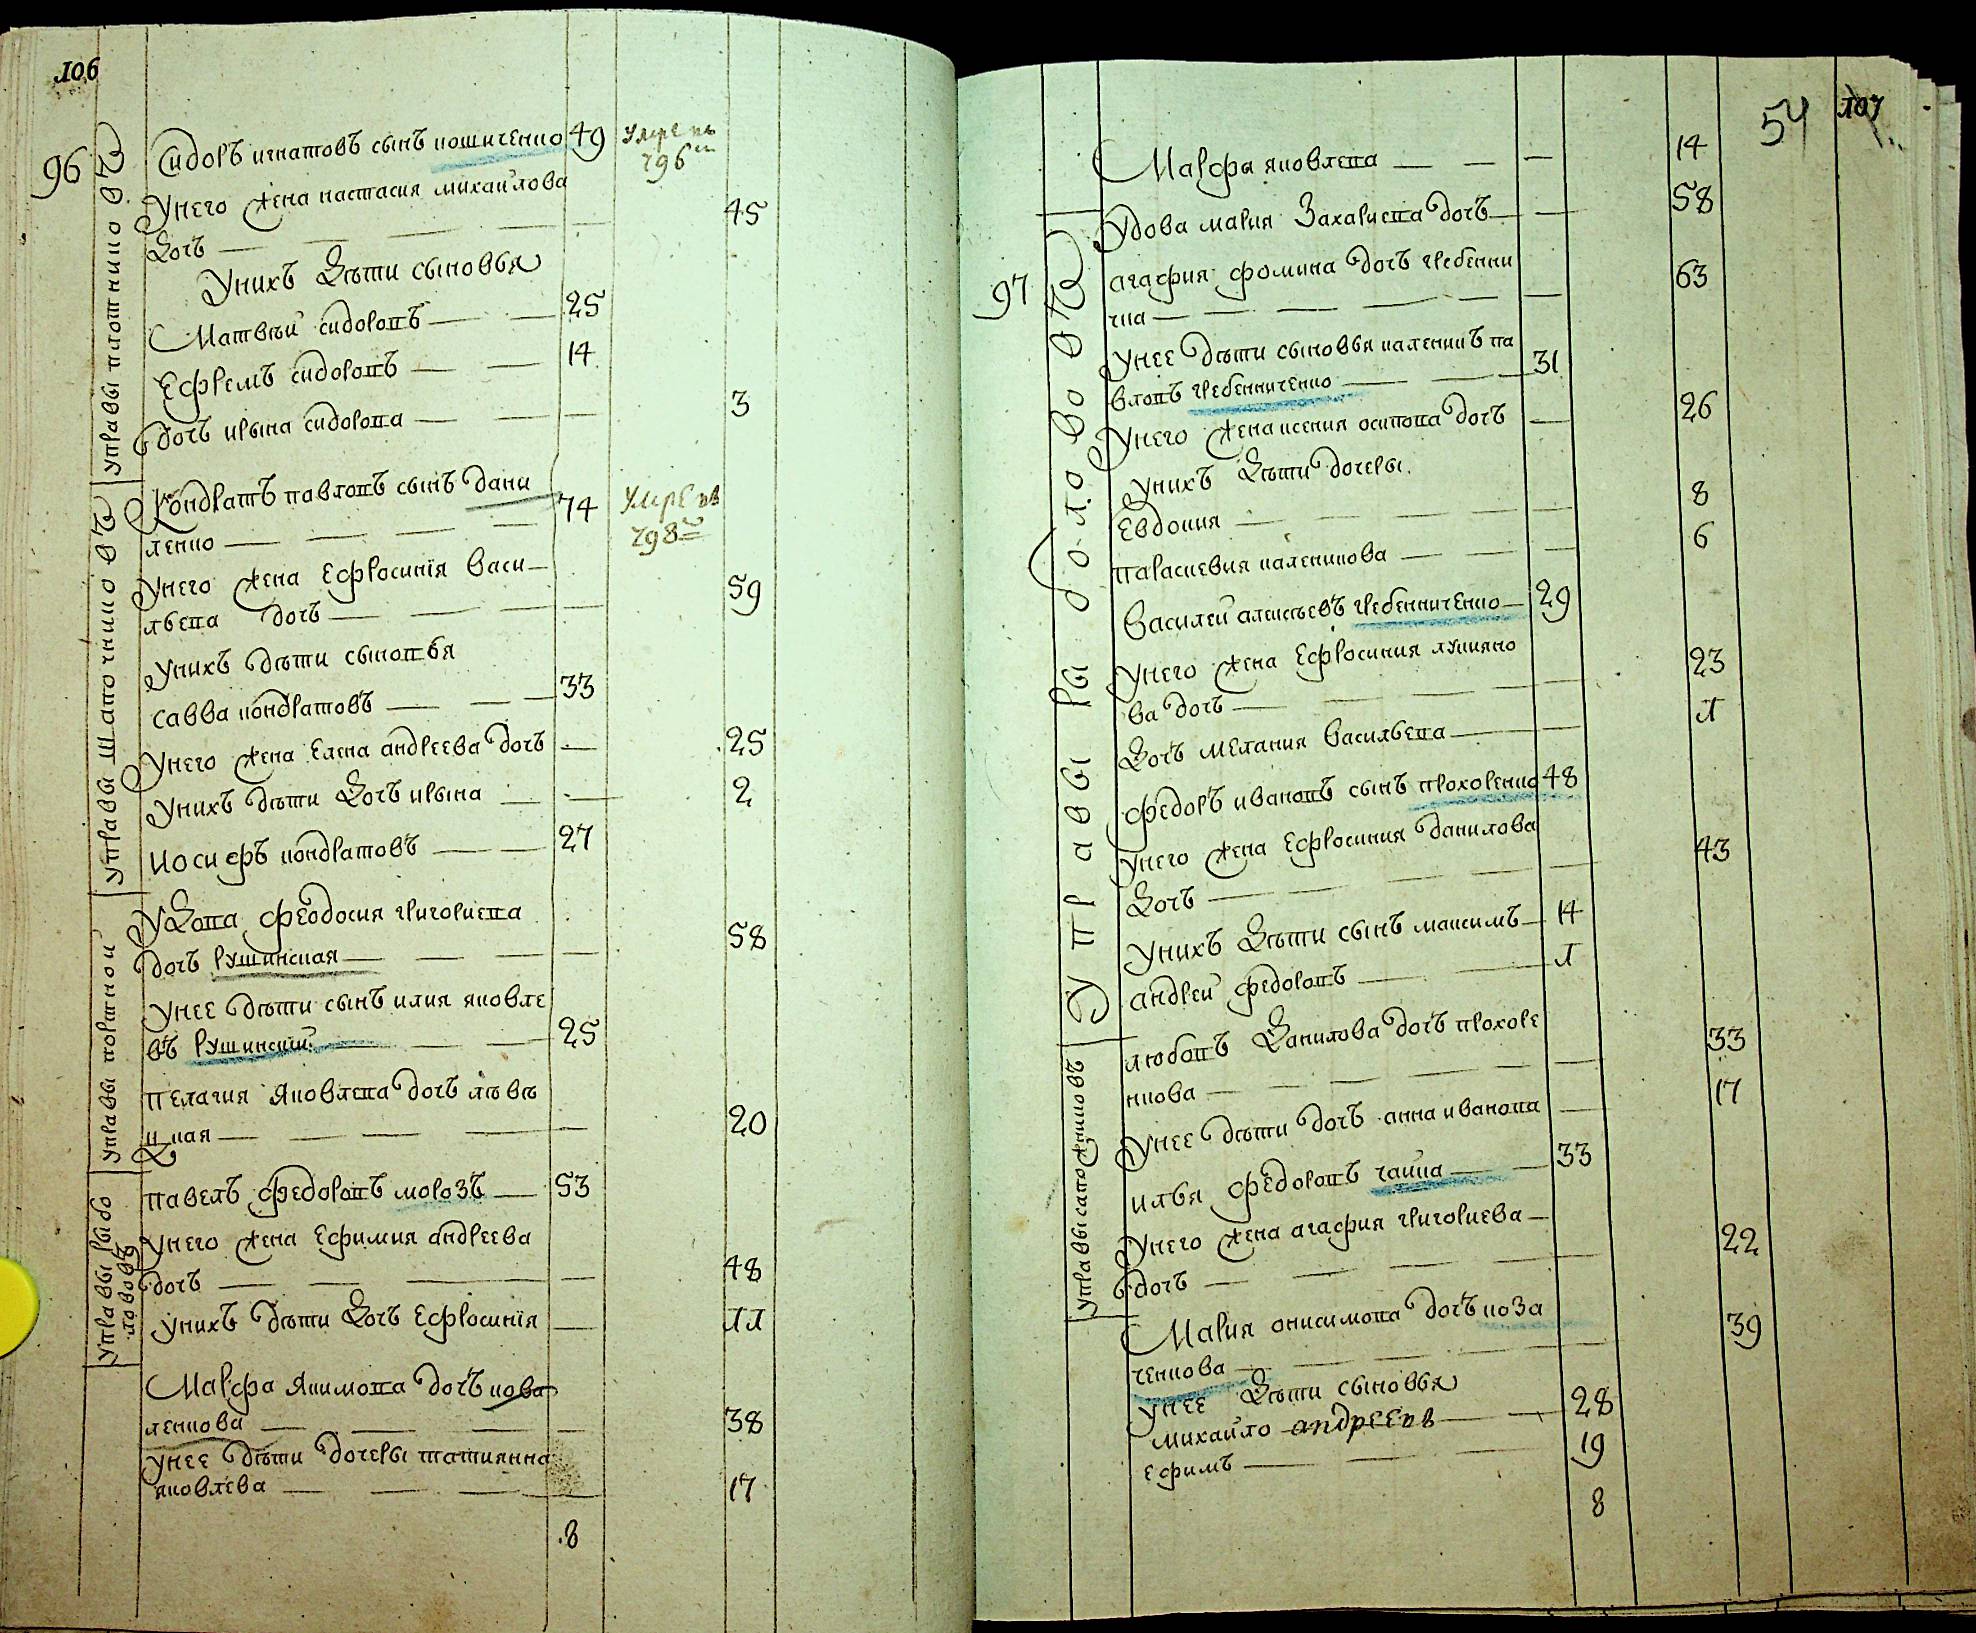 106
96
управы плотницковъ
Сидоръ игнатовъ сынъ кошиченко 49 умре въ
796м
У него жена настасия михаилова
дочь 45
У нихъ дѣти сыновья
Матвѣй сидоровъ 25
Ефремъ сидоровъ 14
дочь ирына сидорова 3
управы шапочниковъ
Кондратъ павловъ сынъ дани
ленко 74 умре въ
798м
У него жена Ефросинїя васи
льева дочь 59
У нихъ дѣти сыновья
савва кондратовъ 33
У него жена Елена андреева дочь 25
У нихъ дѣти дочь ирына 2
иосифъ кондратовъ 27
управы портной
Удова феодосия григориева
дочь Рушинская 58
У нее дѣти сынъ илия яковле
въ Рушинский 25
пелагия яковлева дочь
20
управы рыбо
ловов
павелъ федоровъ морозъ 53
У него жена Ефимия андреева
дочь 48
У нихъ дѣти дочь Ефросинїя 11
Марфа якимова дочь кова
ленкова 38
У нее дѣти дочеры татиянна
яковлева 17
8
107
54
Марфа яковлева 14
Удова мария Захариева дочь 58
97
управы рыболовов
агафия фомина дочь гребенни
чка 63
У нее дѣти сыновья каленикъ па
вловъ гребенниченко 31
У него жена ксения осипова дочь 26
У нихъ дѣти дочеры
Евдокия 8
параскевия каленикова 6
Василей алексѣевъ гребенниченко 29
У него жена Ефросиния лукияно
ва дочь 23
дочь мелания васильева 1
федоръ ивановъ сынъ прохоренко 48
У него жена Ефросиния данилова
дочь 43
У нихъ дѣти сынъ максимъ 14
андрей федоровъ 1
управы сапожниковъ
любовъ данилова дочь прохоре
нкова 33
У нее дѣти дочь анна иванова 17
илья федоровъ чайка 33
У него жена агафия григориева
дочь 22
Мария онисимова дочь коза
ченкова 39
У нее дѣти сыновья
михайло андреевъ 28
ефимъ 19
8